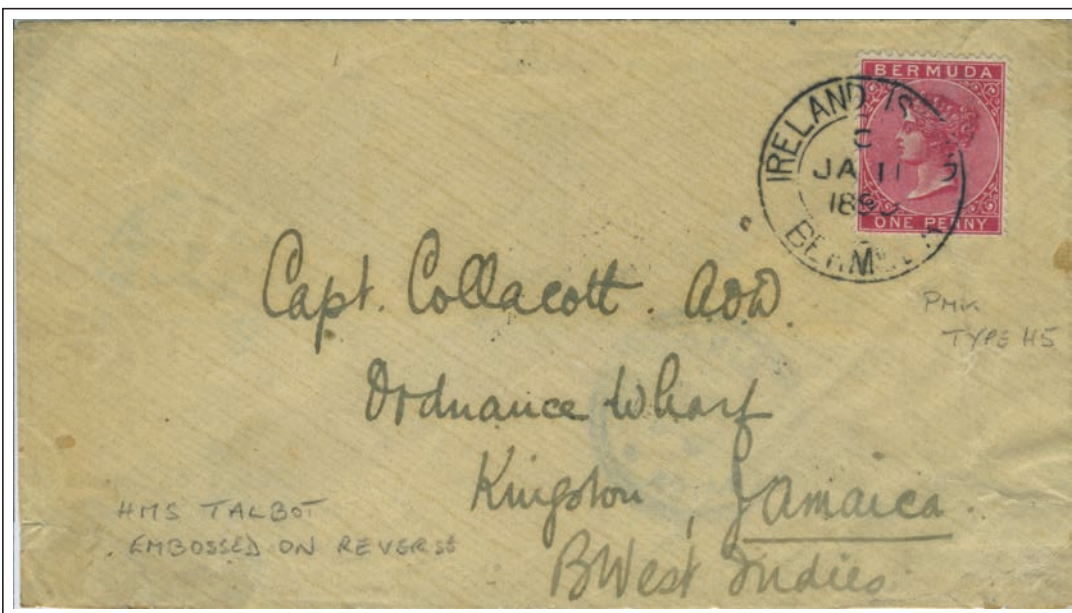 BERMUDA
ONE PENNY
IRELAND IS
C
JA 11
BERM
Capt. Collacott. AOD.
Ordnance Wharf
Kingston, Jamaica.
B West Indies.
PMK
TYPE H5
HMS TALBOT
EMBOSSED ON REVERSE